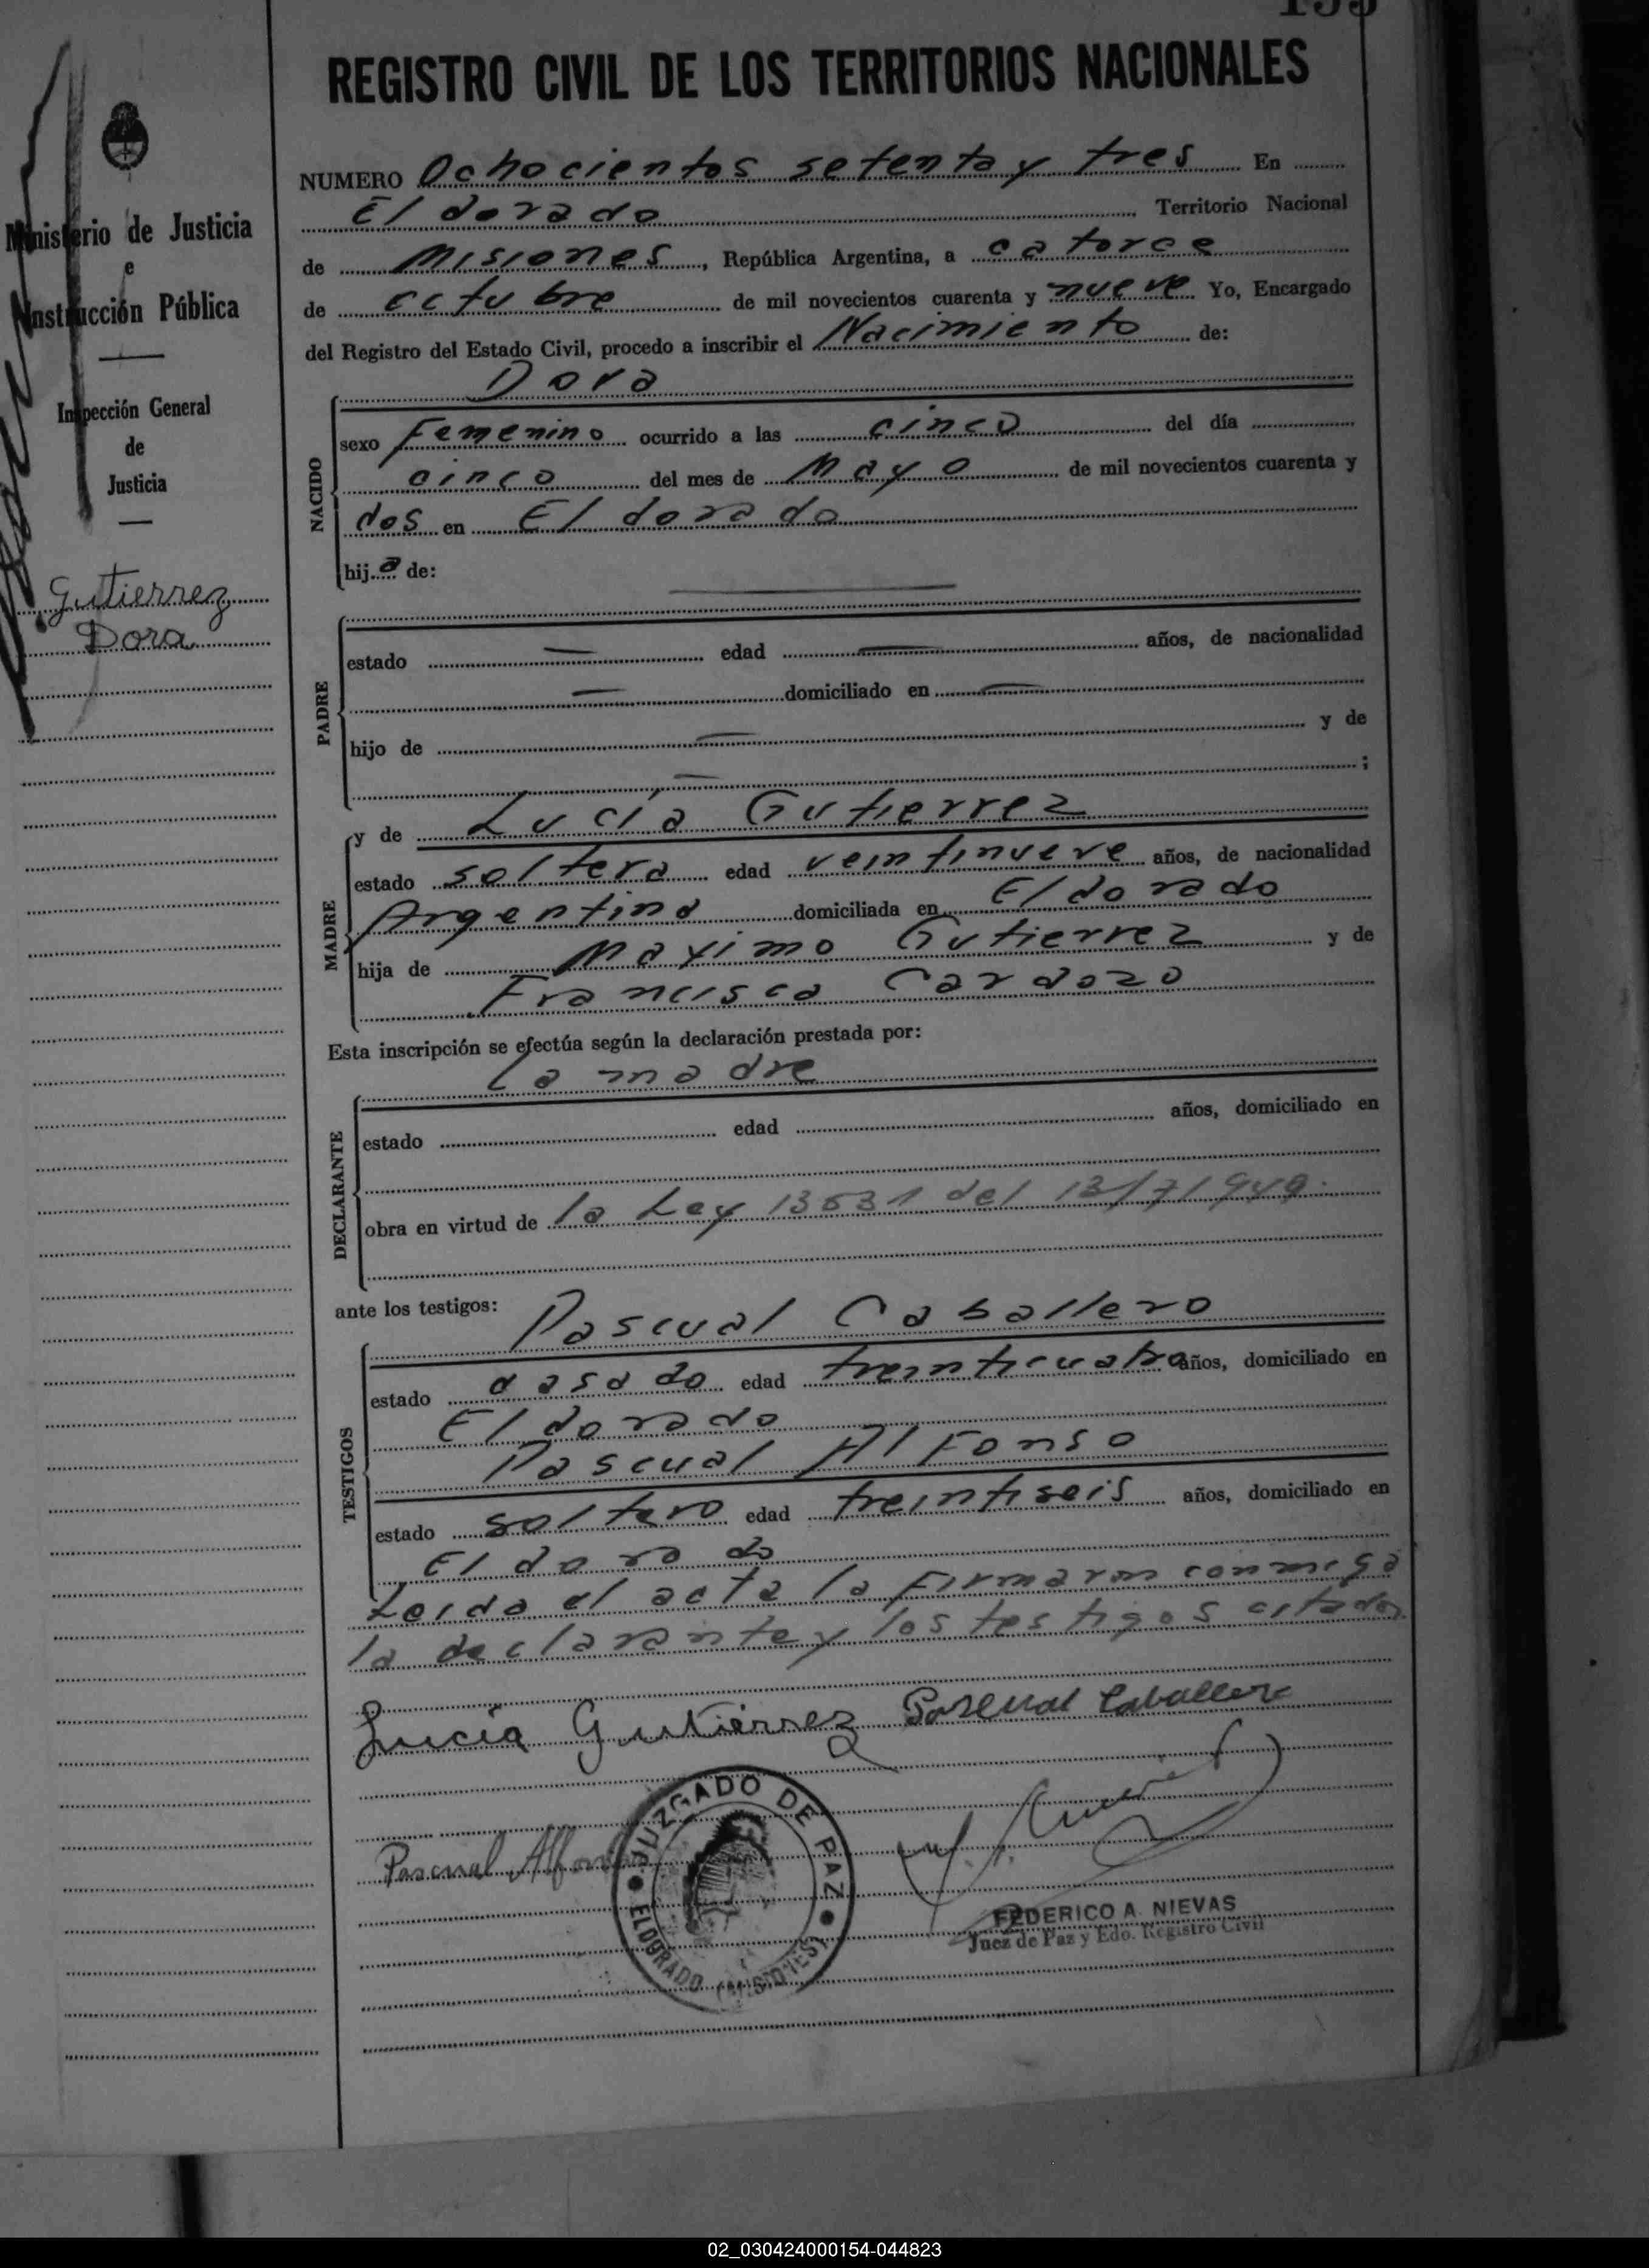 REGISTRO CIVIL DE LOS TERRITORIOS NACIONALES
Ministerio de Justicia
e
Instrucción Pública
Inspección General
de
Justicia
Gutierrez
Dora
NUMERO Ochocientos setenta y tres En
El dorado Territorio Nacional
de Misiones, República Argentina, a catorce
de octubre de mil novecientos cuarenta y nueve Yo, Encargado
del Registro del Estado Civil, procedo a inscribir el Nacimiento de:
Dora
NACIDO
sexo Femenino ocurrido a las cinco del día
cinco del mes de Mayo de mil novecientos cuarenta y
dos en El dorado
hija de:
PADRE
estado — edad — años, de nacionalidad
— domiciliado en —
hijo de — y de
— ;
y de Lucía Gutierrez
MADRE
estado soltera edad veintinueve años, de nacionalidad
Argentina domiciliada en El dorado
hija de Maximo Gutierrez y de
Francisca Cardozo
Esta inscripción se efectúa según la declaración prestada por:
La madre
DECLARANTE
estado edad años, domiciliado en
obra en virtud de la Ley 13531 del 13/7/949.
ante los testigos:
Pascual Caballero
TESTIGOS
estado casado edad treinticuatro años, domiciliado en
El dorado
Pascual Alfonso
estado soltero edad treintiseis años, domiciliado en
El dorado
Leida el acta la firmaron conmigo
la declarante y los testigos citados
Lucía Gutiérrez Pascual Caballero
Pascual Alfonso
JUZGADO DE PAZ
ELDORADO (MISIONES)
FEDERICO A. NIEVAS
Juez de Paz y Edo. Registro Civil
02_030424000154-044823